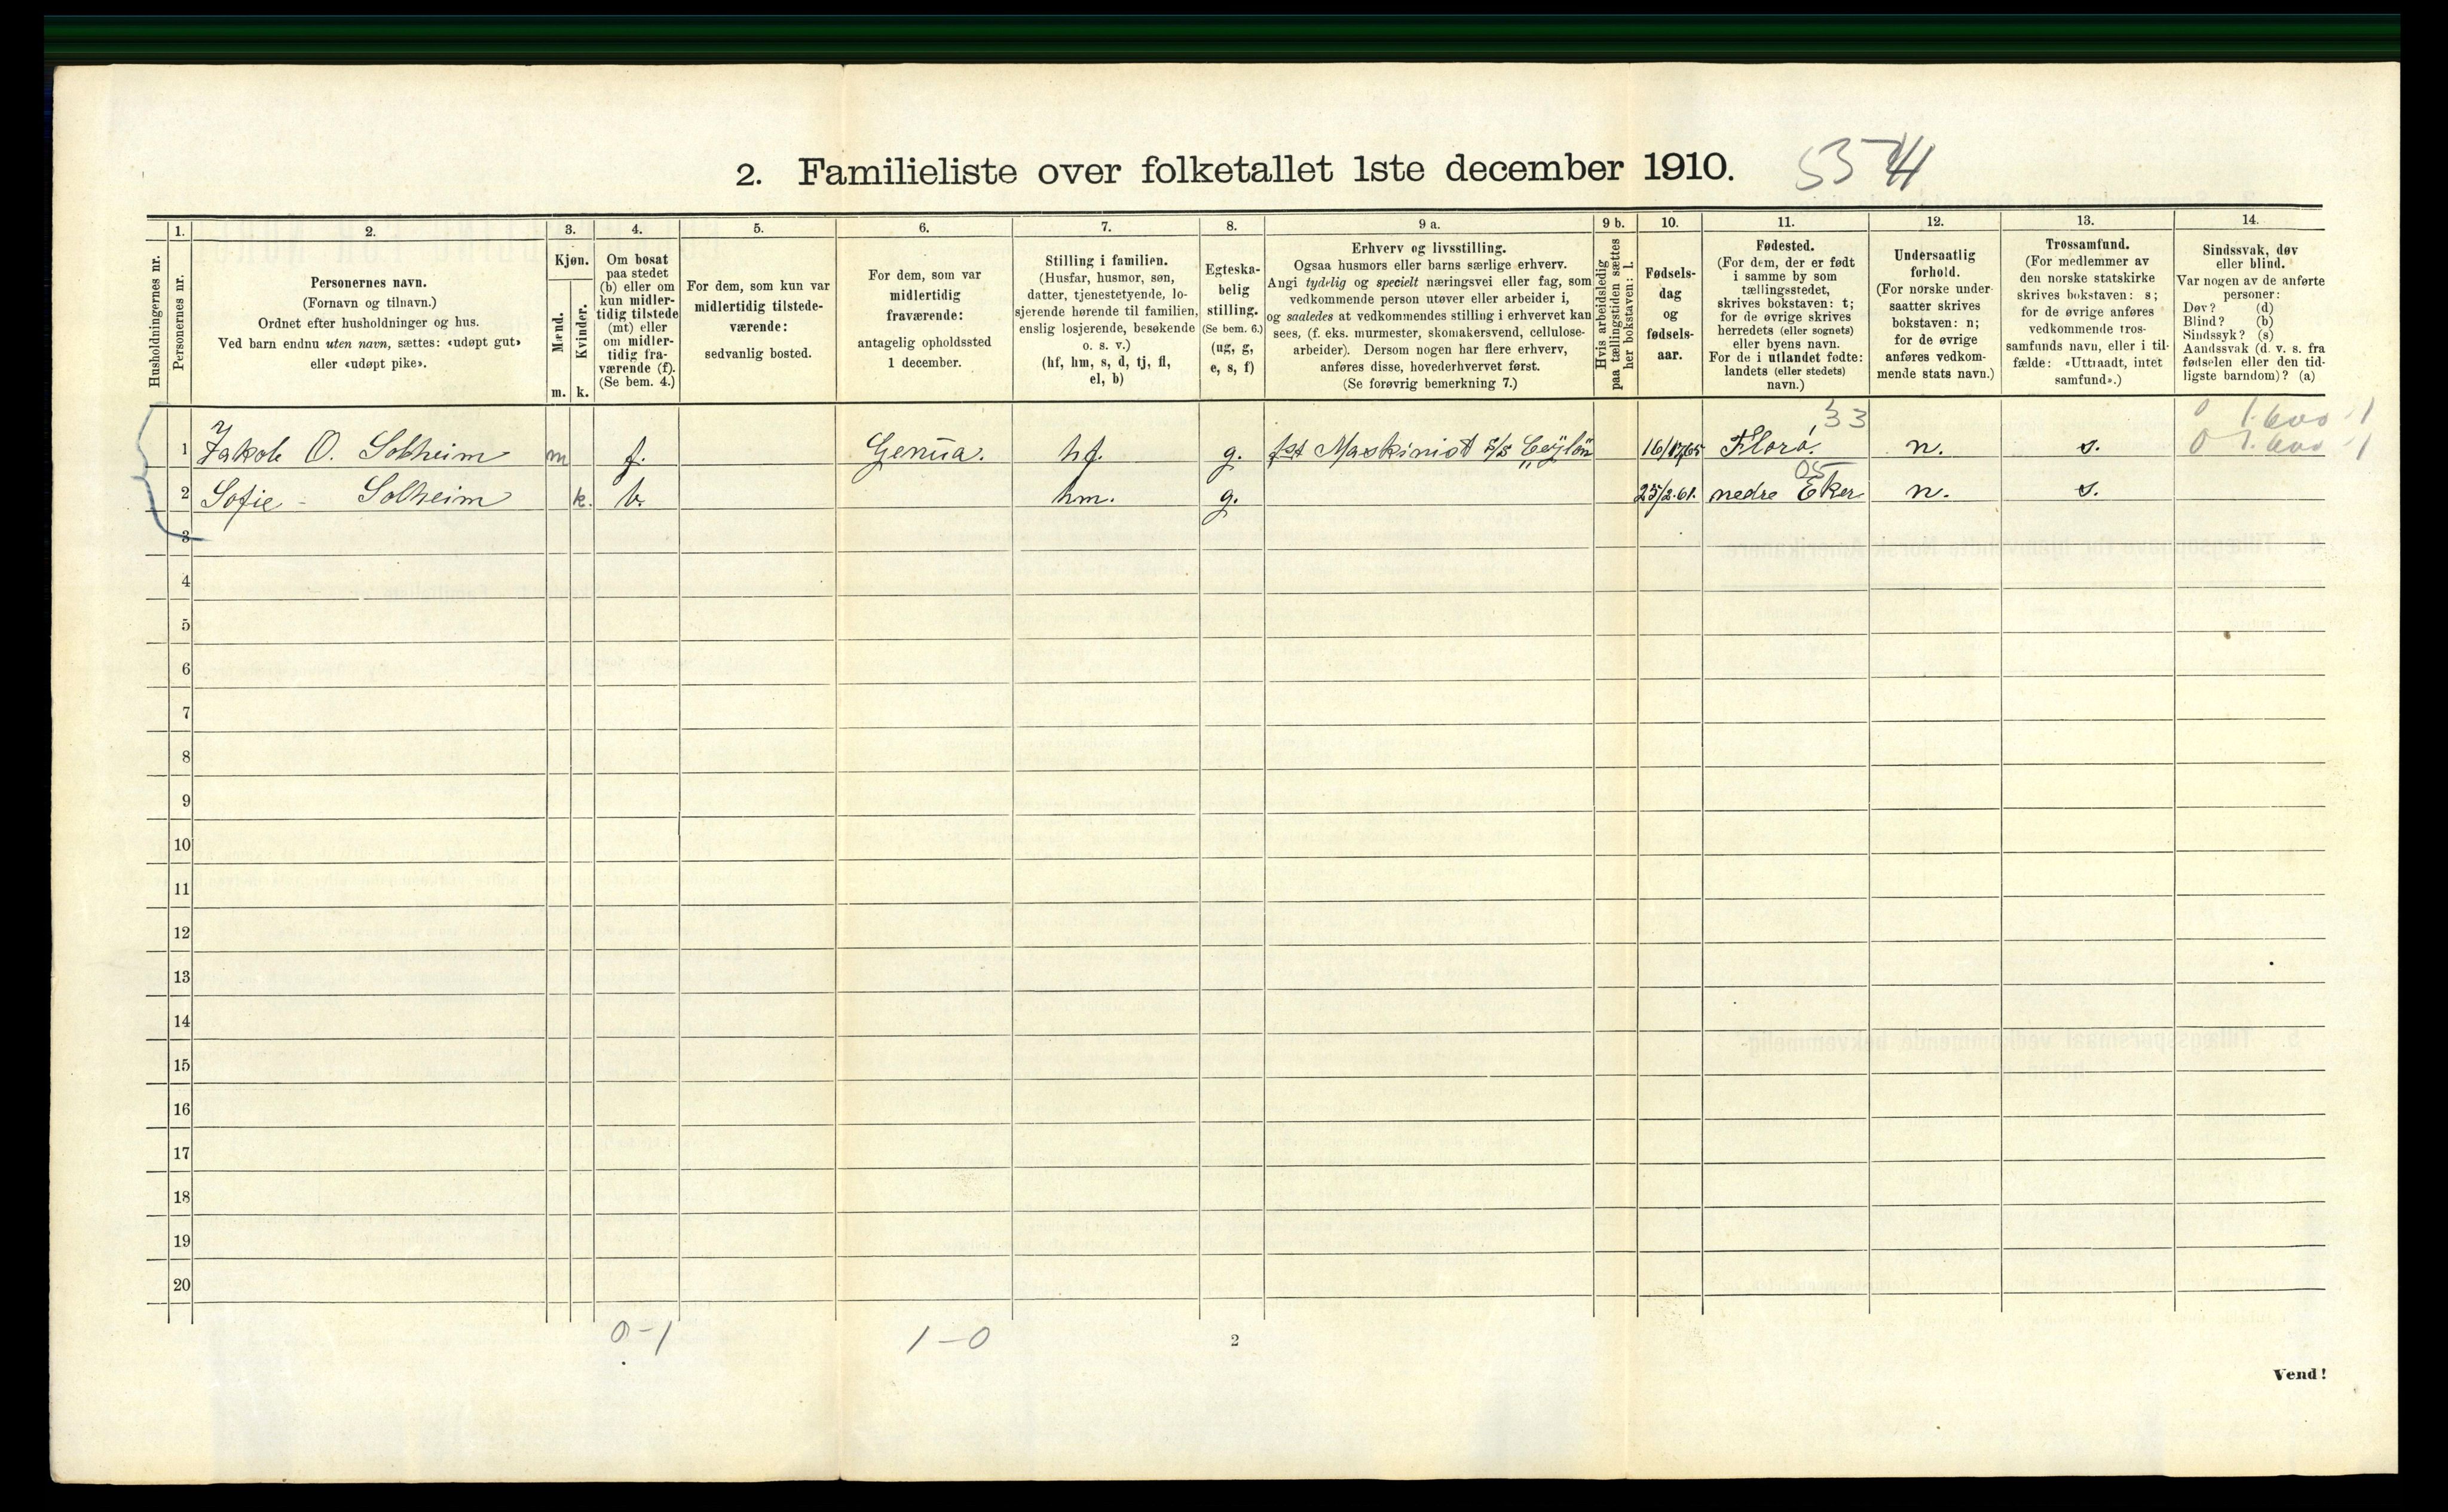 2. Familieliste over folketallet 1ste december 1910.
1. 2. 3. 4. 5. 6. 7. 8. 9 a. 9 b. 10. 11. 12. 13. 14.
Husholdningernes nr.
Personernes nr.
Personernes navn.
(Fornavn og tilnavn.)
Ordnet efter husholdninger og hus.
Ved barn endnu uten navn, sættes: «udøpt gut»
eller «udøpt pike».
Kjøn.
Mænd.
Kvinder.
m. k.
Om bosat
paa stedet
(b) eller om
kun midler-
tidig tilstede
(mt) eller
om midler-
tidig fra-
værende (f).
(Se bem. 4.)
For dem, som kun var
midlertidig tilstede-
værende:
sedvanlig bosted.
For dem, som var
midlertidig
fraværende:
antagelig opholdssted
1 december.
Stilling i familien.
(Husfar, husmor, søn,
datter, tjenestetyende, lo-
sjerende hørende til familien,
enslig losjerende, besøkende
o. s. v.)
(hf, hm, s, d, tj, fl,
el, b)
Egteska-
belig
stilling.
(Se bem. 6.)
(ug, g,
e, s, f)
Erhverv og livsstilling.
Ogsaa husmors eller barns særlige erhverv.
Angi tydelig og specielt næringsvei eller fag, som
vedkommende person utøver eller arbeider i,
og saaledes at vedkommendes stilling i erhvervet kan
sees, (f. eks. murmester, skomakersvend, cellulose-
arbeider). Dersom nogen har flere erhverv,
anføres disse, hovederhvervet først.
(Se forøvrig bemerkning 7.)
Hvis arbeidsledig
paa tællingstiden sættes
her bokstaven: l.
Fødsels-
dag
og
fødsels-
aar.
Fødested.
(For dem, der er født
i samme by som
tællingsstedet,
skrives bokstaven: t;
for de øvrige skrives
herredets (eller sognets)
eller byens navn.
For de i utlandet fødte:
landets (eller stedets)
navn.)
Undersaatlig
forhold.
(For norske under-
saatter skrives
bokstaven: n;
for de øvrige
anføres vedkom-
mende stats navn.)
Trossamfund.
(For medlemmer av
den norske statskirke
skrives bokstaven: s;
for de øvrige anføres
vedkommende tros-
samfunds navn, eller i til-
fælde: «Uttraadt, intet
samfund».)
Sindssvak, døv
eller blind.
Var nogen av de anførte
personer:
Døv? (d)
Blind? (b)
Sindssyk? (s)
Aandssvak (d. v. s. fra
fødselen eller den tid-
ligste barndom)? (a)
33
1 Jakob O. Solheim m f. Genua. hf. g. 1st Maskinist S/S Ceylon Florø. n. s. 0 1.600 - 1
05
2 Sofie - Solheim k. b. hm. g. 25/2.61. nedre Eker n. s.
3
4
5
6
7
8
9
10
11
12
13
14
15
16
17
18
19
20
0-1 1-0
2
Vend!